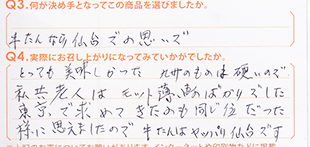 Q3.何が決め手となってこの商品を選びましたか。
牛たんなら仙台での思いで
Q4.実際にお召し上がりになってみていかがでしたか。
とっても美味しかった 九州のものは硬いので
私共老人は モット薄い ばかりでした
東京で求めてきたかも同じ位だった
様に思えましたので 牛たんはヤッパリ仙台です